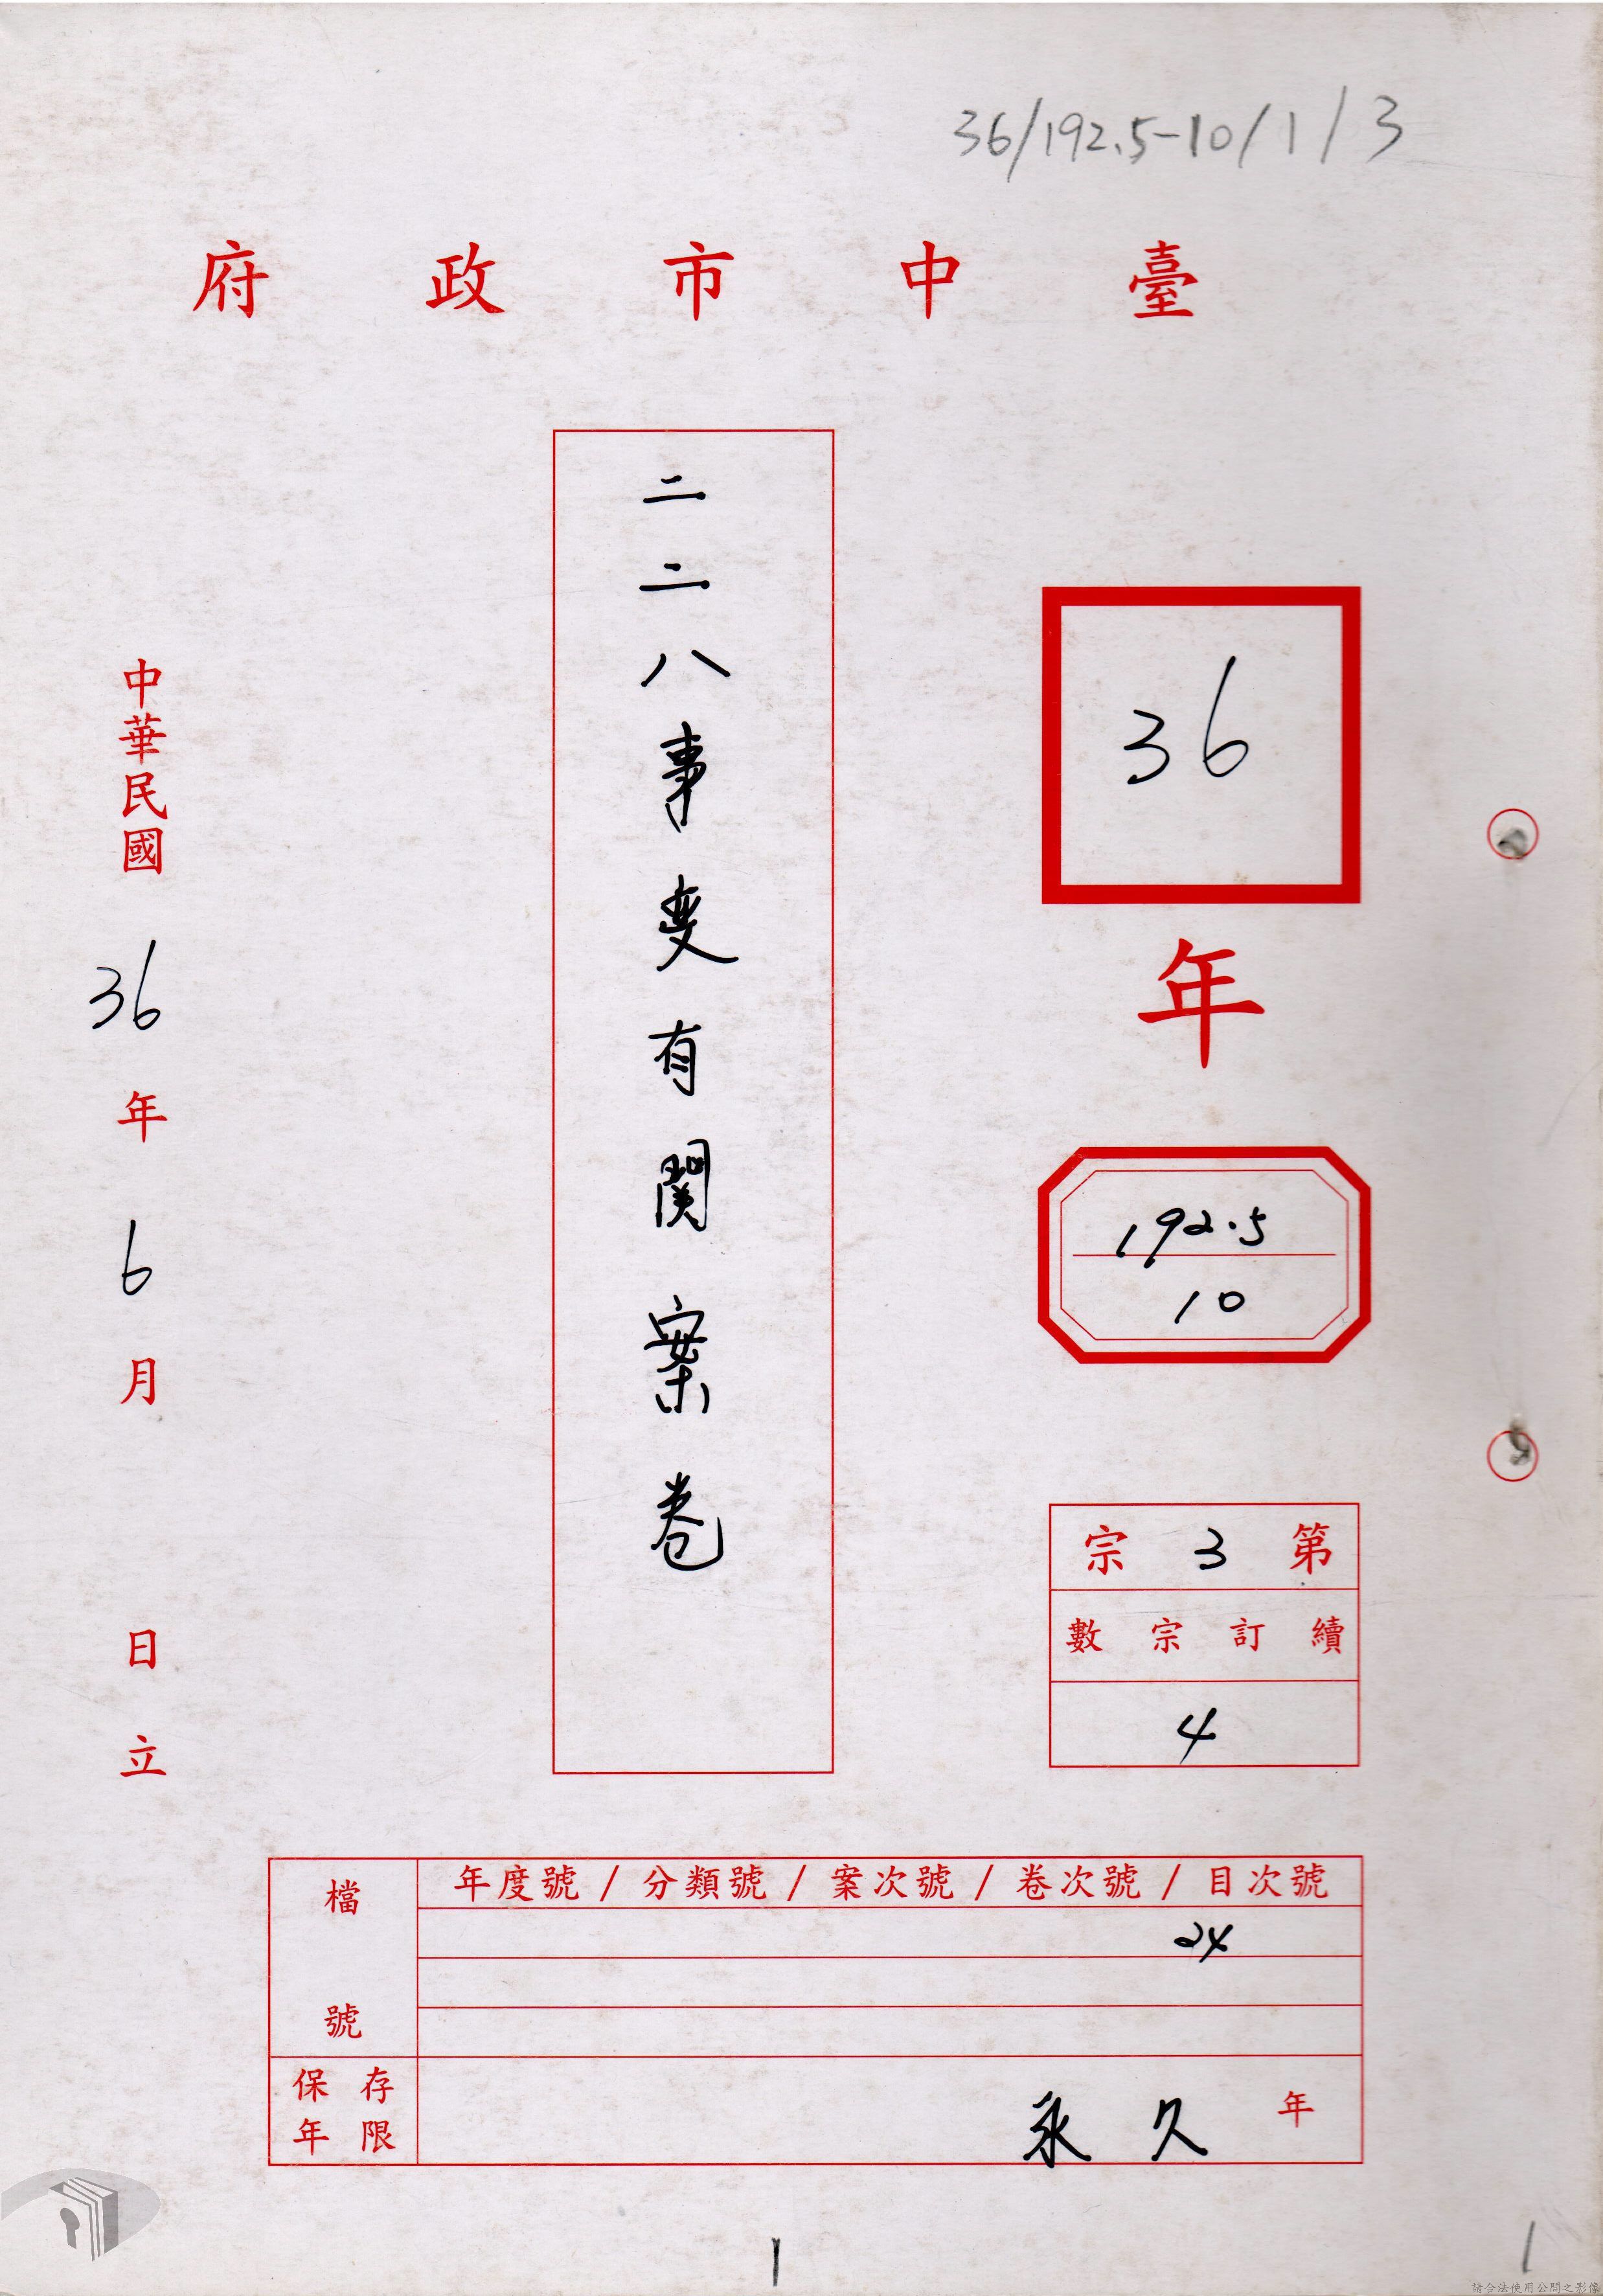 36/192.5-10/1/3
臺中市政府
36
年
192.5
10
第3宗
續訂宗數
4
二二八事変有関案卷
中華民國36年6月 日立
檔號
年度號/分類號/案次號/卷次號/目次號
24
保存年限
永久 年
1
1
請合法使用公開之影像